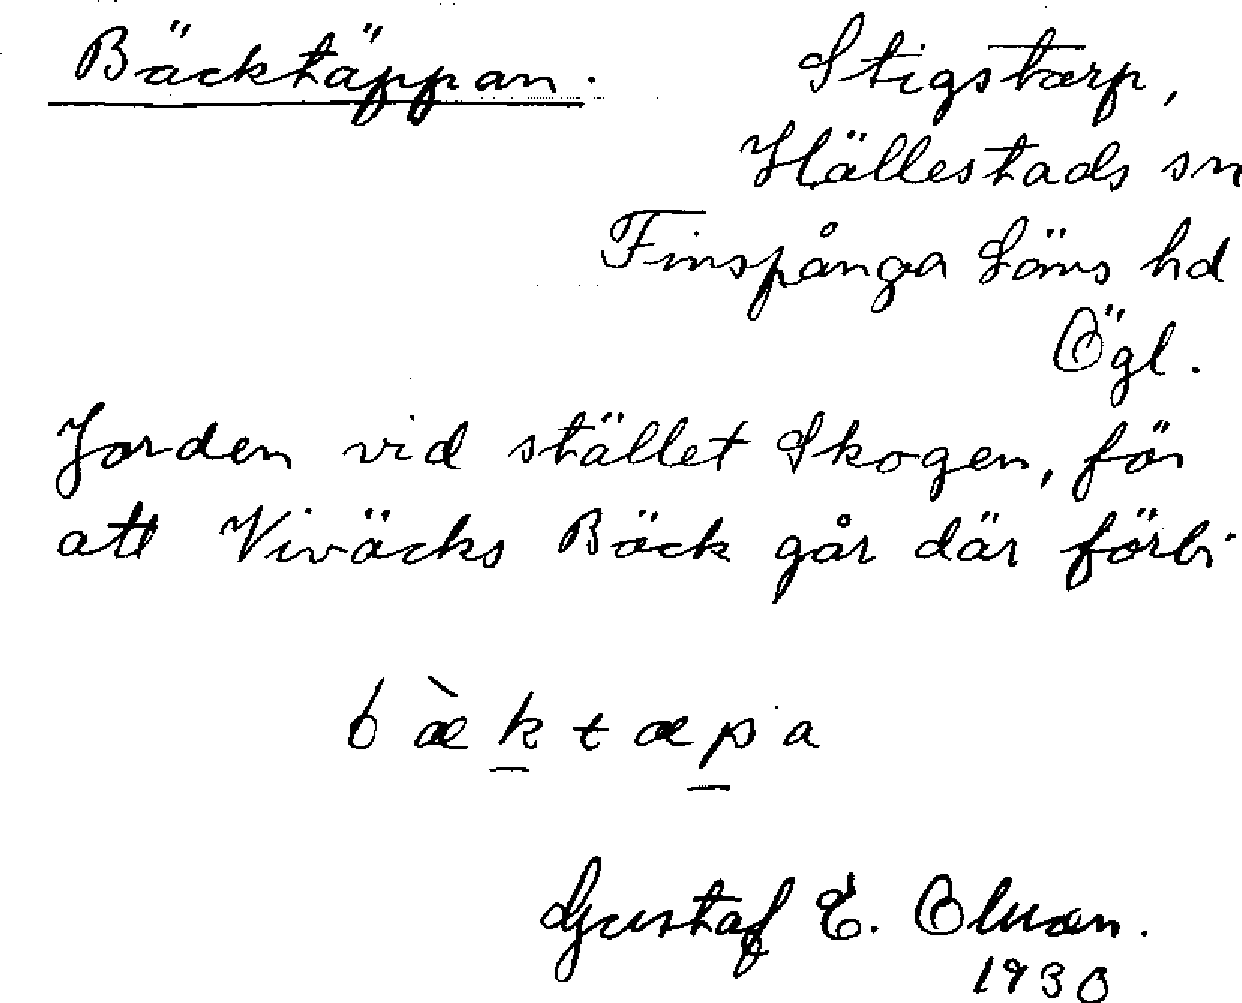 Bäcktäppan.
Stigstorp,
Hällestads sn
Finspånga Läns hd
Ögl.
Jorden vid stället Skogen, för
att Viväcks Bäck går där förbi
bæ̀ktæpa
Gustaf E. Olsson.
1930